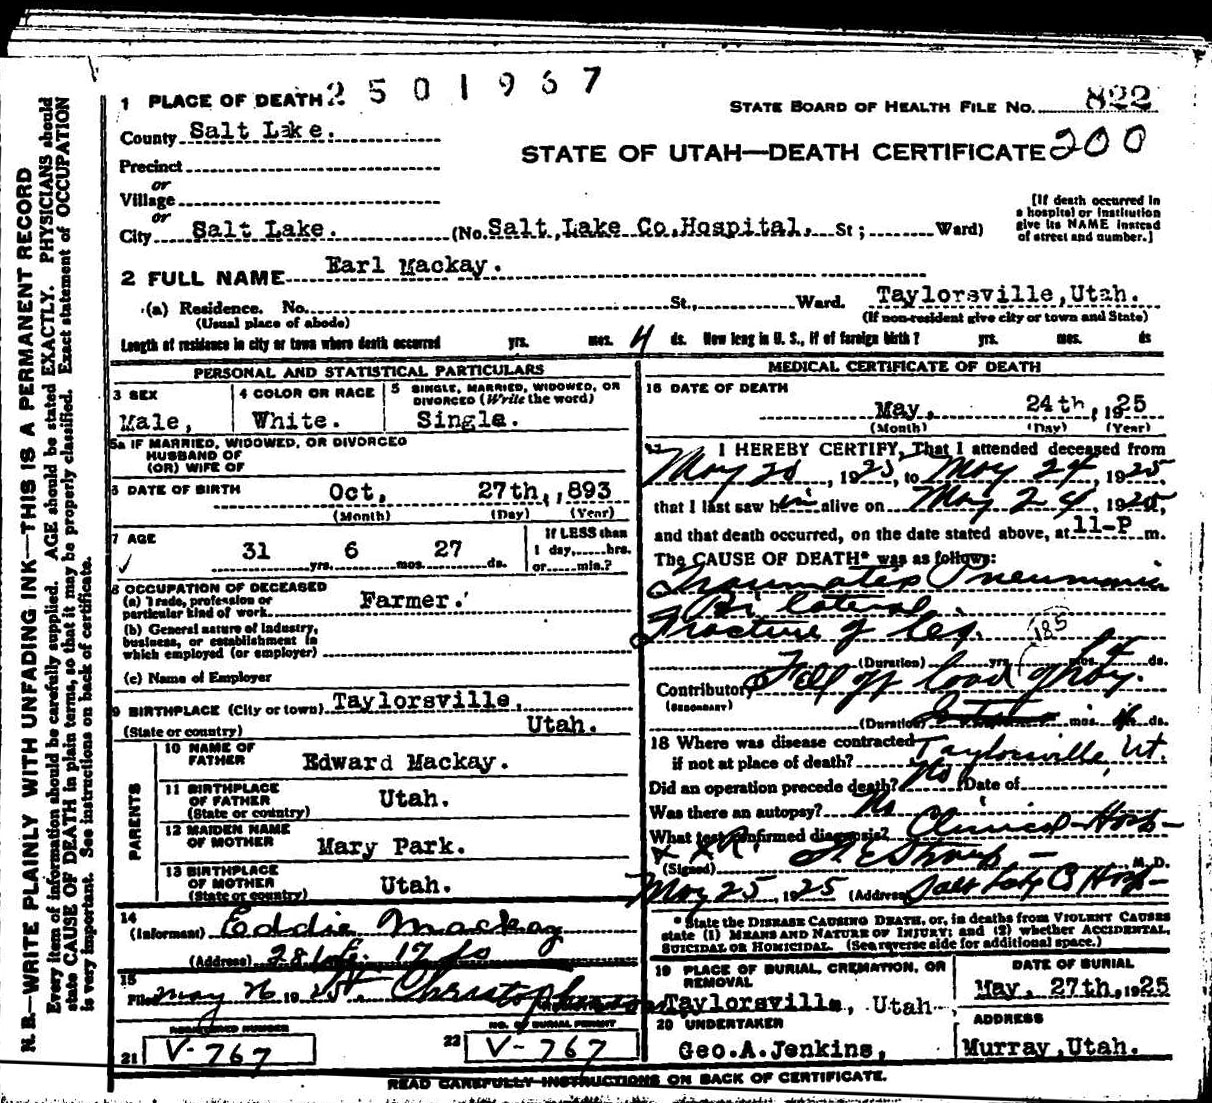 N. B.—WRITE PLAINLY WITH UNFADING INK—THIS IS A PERMANENT RECORD
Every item of information should be carefully supplied. AGE should be stated EXACTLY. PHYSICIANS should
state CAUSE OF DEATH in plain terms, so that it may be properly classified. Exact statement of OCCUPATION
is very important. See instructions on back of certificate.
1 PLACE OF DEATH 2501967
STATE BOARD OF HEALTH FILE NO. 822
County Salt Lake.
STATE OF UTAH—DEATH CERTIFICATE 200
Precinct
or
Village
or
City Salt Lake. (No. Salt Lake Co. Hospital, St; Ward)
[If death occurred in
a hospital or institution
give its NAME instead
of street and number.]
2 FULL NAME Earl Mackay.
(a) Residence. No. St., Ward. Taylorsville, Utah.
(Usual place of abode) (If non-resident give city or town and State)
Length of residence in city or town where death occurred yrs. mos. 4 ds. How long in U. S., if of foreign birth? yrs. mos. ds
PERSONAL AND STATISTICAL PARTICULARS
3 SEX Male,
4 COLOR OR RACE White.
5 SINGLE, MARRIED, WIDOWED, OR
DIVORCED (Write the word)
Single.
5a IF MARRIED, WIDOWED, OR DIVORCED
HUSBAND OF
(OR) WIFE OF
6 DATE OF BIRTH Oct, 27th, ,893
(Month) (Day) (Year)
7 AGE 31 yrs. 6 mos. 27 ds.
If LESS than
1 day,......hrs.
or......min.?
8 OCCUPATION OF DECEASED
(a) Trade, profession or
particular kind of work Farmer.
(b) General nature of industry,
business, or establishment in
which employed (or employer)
(c) Name of Employer
9 BIRTHPLACE (City or town) Taylorsville,
(State or country) Utah.
PARENTS
10 NAME OF
FATHER Edward Mackay.
11 BIRTHPLACE
OF FATHER Utah.
(State or country)
12 MAIDEN NAME
OF MOTHER Mary Park.
13 BIRTHPLACE
OF MOTHER Utah.
(State or country)
14
(Informant) Eddie Mackay
(Address)
15
Filed May 26 1925
REGISTERED NUMBER
21 V-767
NO. OF BURIAL PERMIT
22 V-767
MEDICAL CERTIFICATE OF DEATH
16 DATE OF DEATH
May, 24th, 1925
(Month) (Day) (Year)
17 I HEREBY CERTIFY, That I attended deceased from
May 20, 1925, to May 24, 1925
that I last saw him alive on May 24, 1925,
and that death occurred, on the date stated above, at 11-P m.
The CAUSE OF DEATH* was as follows:
Traumatic Pneumonia
Bilateral
Fracture of leg. 185
(Duration) yrs. mos. ds.
Contributory Fall off load of hay.
(SECONDARY)
(Duration) mos. ds.
18 Where was disease contracted
if not at place of death? Taylorsville, Ut.
Did an operation precede death? No Date of
Was there an autopsy? No
What test confirmed diagnosis? Clinical-Hosp-
X Ray
(Signed) M. D.
May 25, 1925 (Address) Salt Lake Co Hosp-
* State the DISEASE CAUSING DEATH, or, in deaths from VIOLENT CAUSES
state (1) MEANS AND NATURE OF INJURY; and (2) whether ACCIDENTAL,
SUICIDAL OR HOMICIDAL. (See reverse side for additional space.)
19 PLACE OF BURIAL, CREMATION, OR
REMOVAL
Taylorsville, Utah
DATE OF BURIAL
May, 27th, 1925
20 UNDERTAKER
Geo. A. Jenkins,
ADDRESS
Murray, Utah.
READ CAREFULLY INSTRUCTIONS ON BACK OF CERTIFICATE.